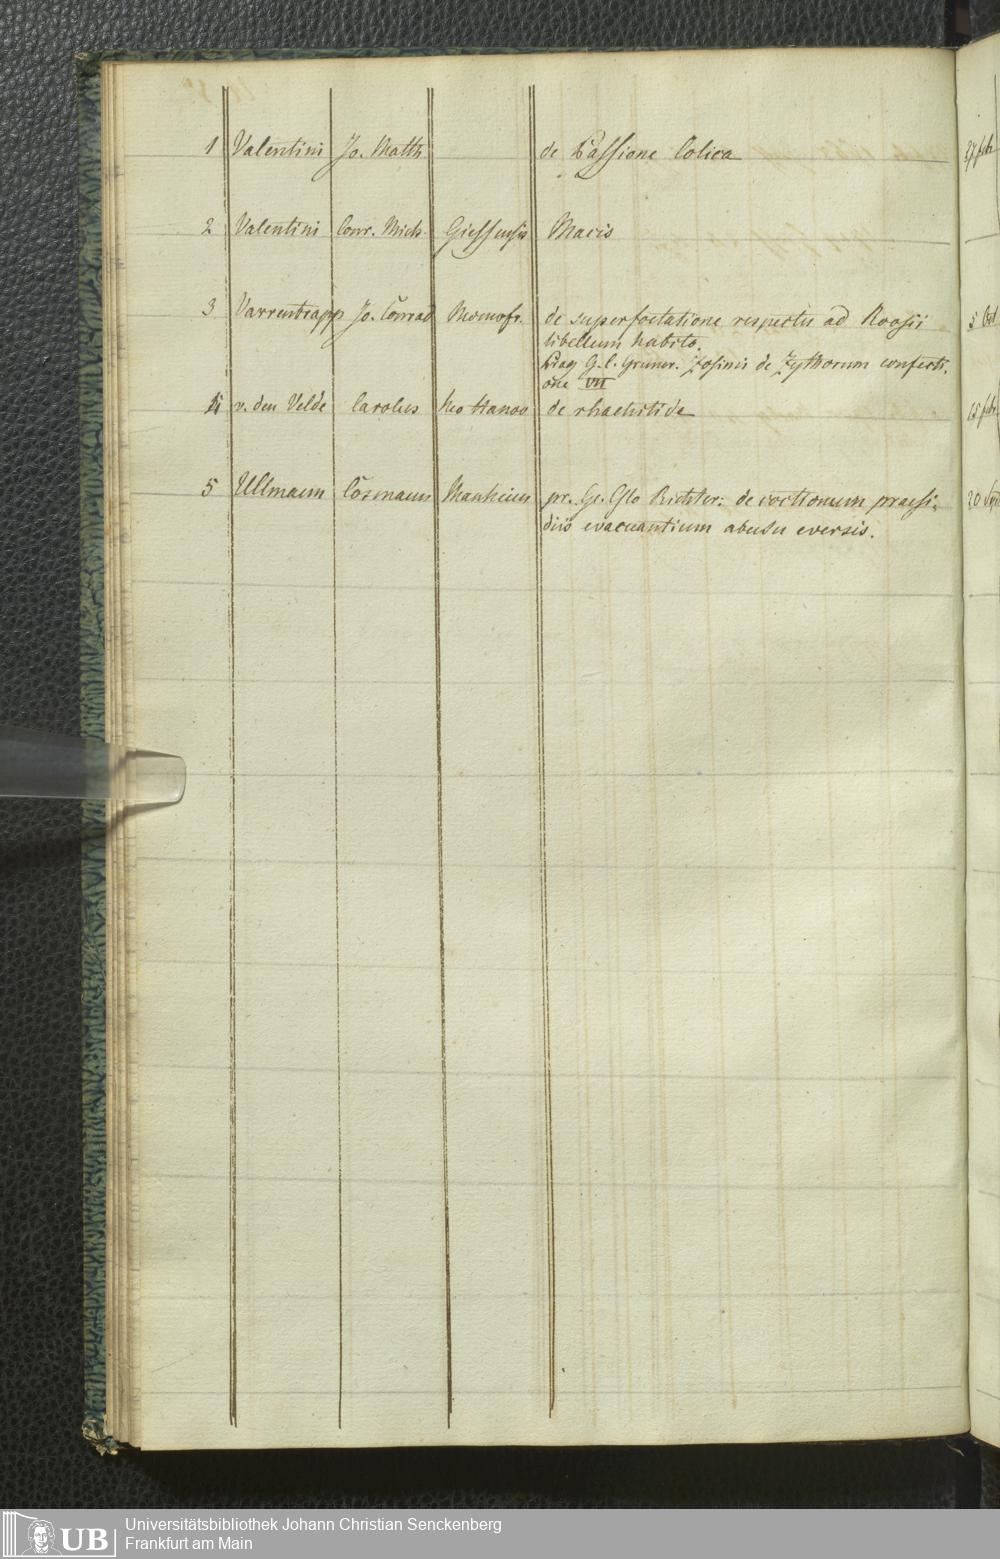 1 Valentini Jo. Matth de Passione Colica 27 febr
2 Valentini Conr. Mich. Giessensis Macis
3 Varrentrapp Jo. Conrad Moenofr. de superfoetatione respectu ad Roosii 5 Oct
libellum habito.
Prag. G. C. Gruner. Zosimi de Zythorum confecti-
one VII
4 v. den Velde Carolus Neo Hanov de rhachitide 15 febr
5 Ullmann Cosmann Manheim pr. Ge. Glo Richter: de coctionum praesi- 20 Sept
diis evacuantium abusu eversis.
UB
Universitätsbibliothek Johann Christian Senckenberg
Frankfurt am Main